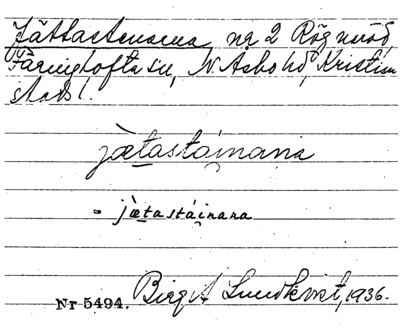 Jättastenarna, na 2 Rögnaröd,
Färingtofta sn, N. Åsbo hd, Kristian
stads l.
jætastáinana
= jætastáinana
Nr 5494. Birgit Lundkvist, 1936.